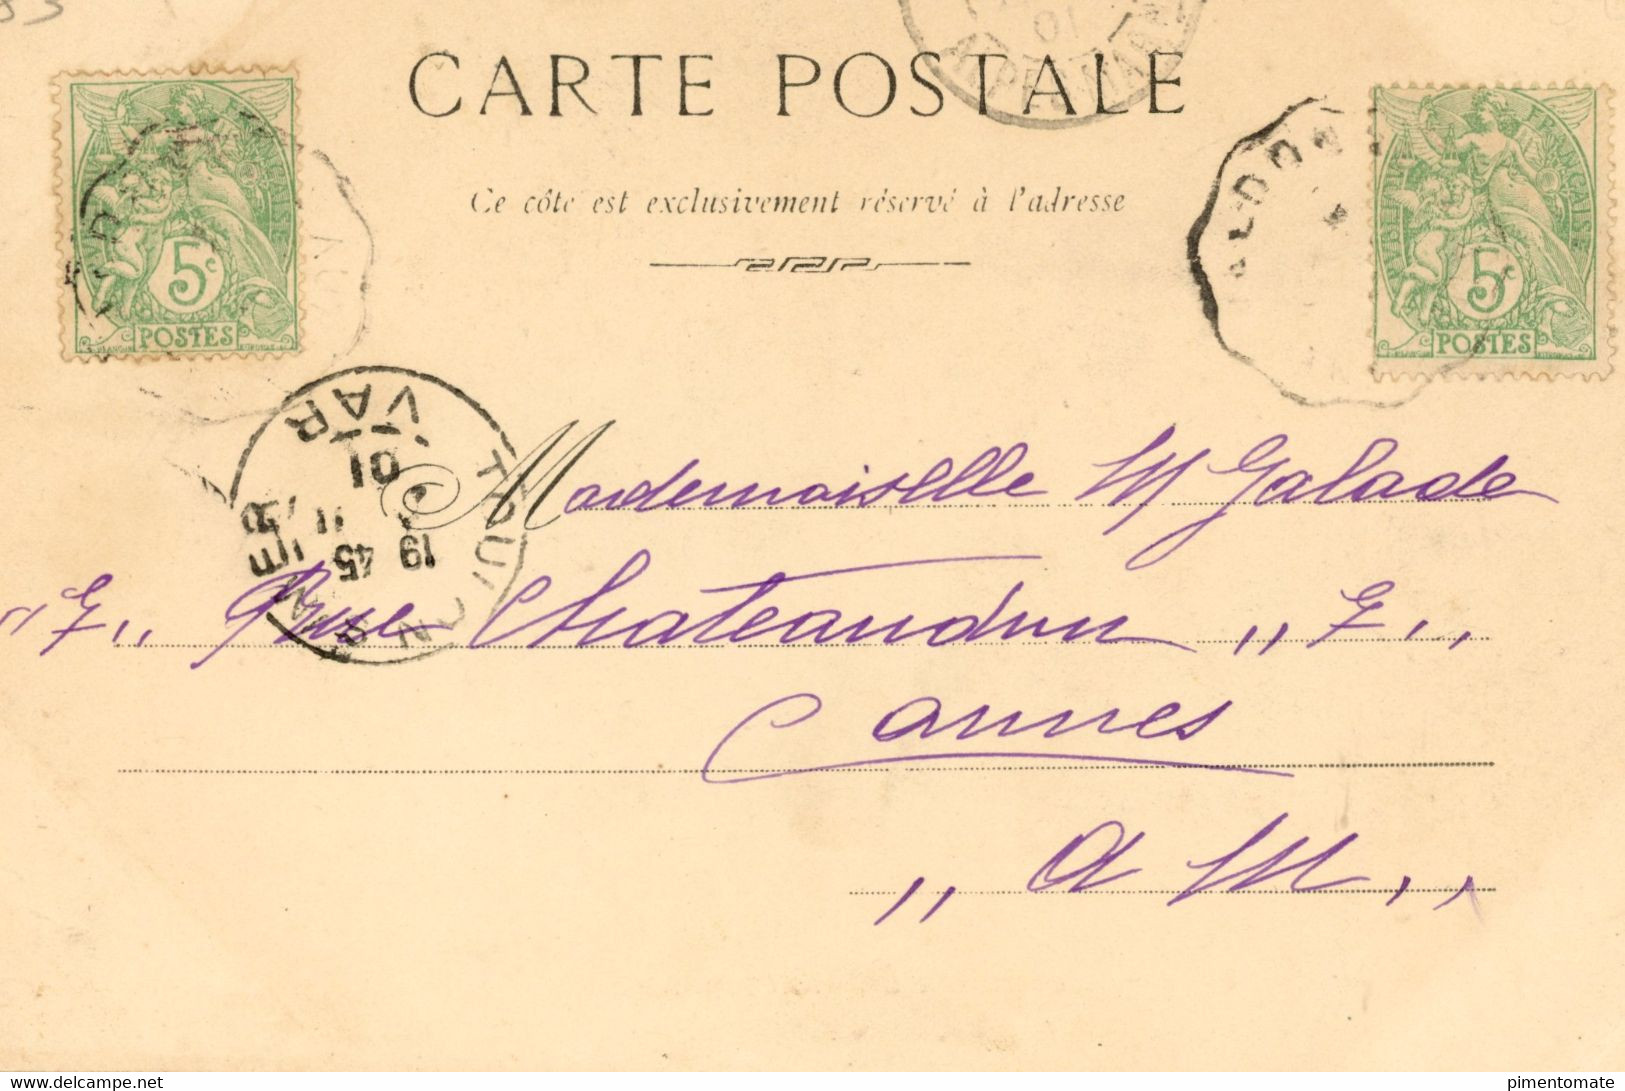 CARTE POSTALE
Ce côté est exclusivement réservé à l'adresse
RÉPUBLIQUE FRANÇAISE
5c
POSTES
RÉPUBLIQUE FRANÇAISE
5c
POSTES
VAR
01
19 45
01
Mademoiselle M Galade
"7,, Rue Chateaudun ,, 7,,
Cannes
,, A M,,
www.delcampe.net
pimentomate